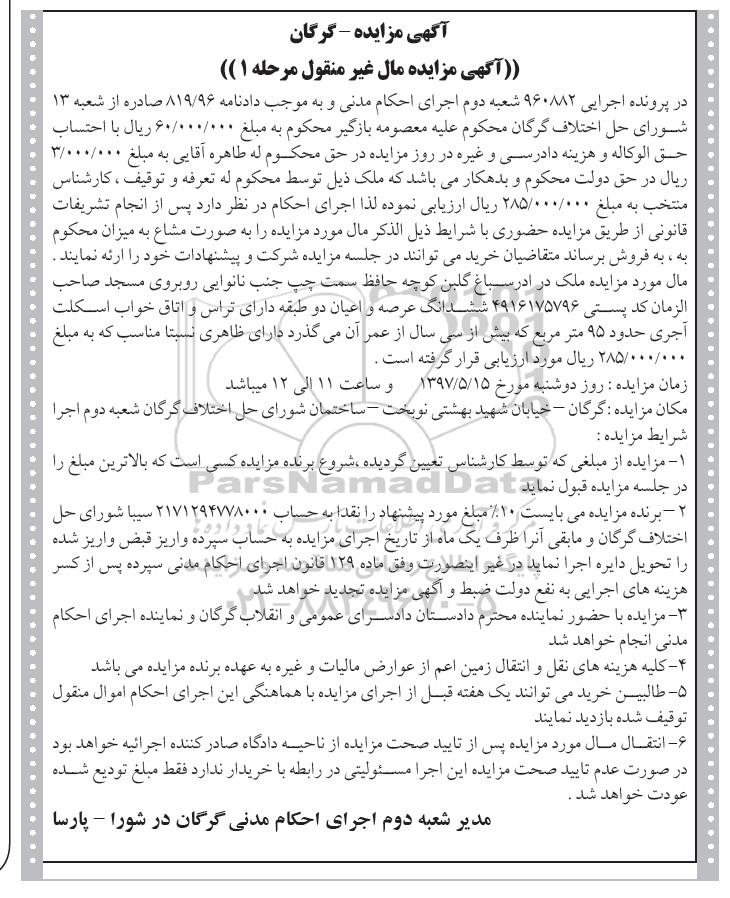 آگهی مزایده – گرگان
((آگهی مزایده مال غیر منقول مرحله ۱))
در پرونده اجرایی ۹۶۰۸۸۲ شعبه دوم اجرای احکام مدنی و به موجب دادنامه ۸۱۹/۹۶ صادره از شعبه ۱۳
شورای حل اختلاف گرگان محکوم علیه معصومه بازگیر محکوم به مبلغ ۶۰/۰۰۰/۰۰۰ ریال با احتساب
حق الوکاله و هزینه دادرسی و غیره در روز مزایده در حق محکوم له طاهره آقایی به مبلغ ۳/۰۰۰/۰۰۰
ریال در حق دولت محکوم و بدهکار می باشد که ملک ذیل توسط محکوم له تعرفه و توقیف ، کارشناس
منتخب به مبلغ ۲۸۵/۰۰۰/۰۰۰ ریال ارزیابی نموده لذا اجرای احکام در نظر دارد پس از انجام تشریفات
قانونی از طریق مزایده حضوری با شرایط ذیل الذکر مال مورد مزایده را به صورت مشاع به میزان محکوم
به ، به فروش برساند متقاضیان خرید می توانند در جلسه مزایده شرکت و پیشنهادات خود را ارئه نمایند .
مال مورد مزایده ملک در ادرس باغ گلبن کوچه حافظ سمت چپ جنب نانوایی روبروی مسجد صاحب
الزمان کد پستی ۴۹۱۶۱۷۵۷۹۶ ششدانگ عرصه و اعیان دو طبقه دارای تراس و اتاق خواب اسکلت
آجری حدود ۹۵ متر مربع که بیش از سی سال از عمر آن می گذرد دارای ظاهری نسبتا مناسب که به مبلغ
۲۸۵/۰۰۰/۰۰۰ ریال مورد ارزیابی قرار گرفته است .
زمان مزایده : روز دوشنبه مورخ ۱۳۹۷/۵/۱۵ و ساعت ۱۱ الی ۱۲ میباشد
مکان مزایده :گرگان – خیابان شهید بهشتی نوبخت – ساختمان شورای حل اختلاف گرگان شعبه دوم اجرا
شرایط مزایده :
۱- مزایده از مبلغی که توسط کارشناس تعیین گردیده ،شروع برنده مزایده کسی است که بالاترین مبلغ را
در جلسه مزایده قبول نماید
۲ – برنده مزایده می بایست ۱۰٪ مبلغ مورد پیشنهاد را نقدا به حساب ۲۱۷۱۲۹۴۷۷۸۰۰۰ سیبا شورای حل
اختلاف گرگان و مابقی آنرا ظرف یک ماه از تاریخ اجرای مزایده به حساب سپرده واریز قبض واریز شده
را تحویل دایره اجرا نماید در غیر اینصورت وفق ماده ۱۲۹ قانون اجرای احکام مدنی سپرده پس از کسر
هزینه های اجرایی به نفع دولت ضبط و آگهی مزایده تجدید خواهد شد
۳- مزایده با حضور نماینده محترم دادستان دادسرای عمومی و انقلاب گرگان و نماینده اجرای احکام
مدنی انجام خواهد شد
۴- کلیه هزینه های نقل و انتقال زمین اعم از عوارض مالیات و غیره به عهده برنده مزایده می باشد
۵- طالبین خرید می توانند یک هفته قبل از اجرای مزایده با هماهنگی این اجرای احکام اموال منقول
توقیف شده بازدید نمایند
۶- انتقال مال مورد مزایده پس از تایید صحت مزایده از ناحیه دادگاه صادر کننده اجرائیه خواهد بود
در صورت عدم تایید صحت مزایده این اجرا مسئولیتی در رابطه با خریدار ندارد فقط مبلغ تودیع شده
عودت خواهد شد .
مدیر شعبه دوم اجرای احکام مدنی گرگان در شورا – پارسا
ParsNamadData
۰۲۱-۸۸۳۴۹۶۷۰-۵